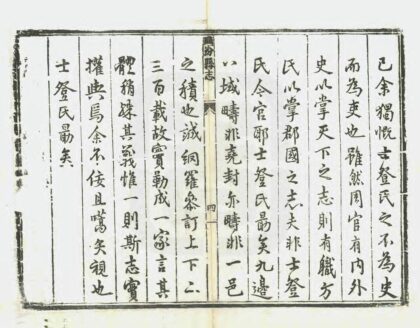 已余獨慨士登氏之不為史
而為吏也雖然周官有內外
史以掌天下之志則有職方
氏以掌郡國之志夫非士登
氏令官耶士登氏勗矣九邊
以城疇非堯封亦疇非一邑
汾縣志 四
之積也誠網羅參訂上下二
三百載故實勒成一家言其
體稍殊其義惟一則斯志實
權輿焉余不佞且嚆矢視也
士登氏勗矣